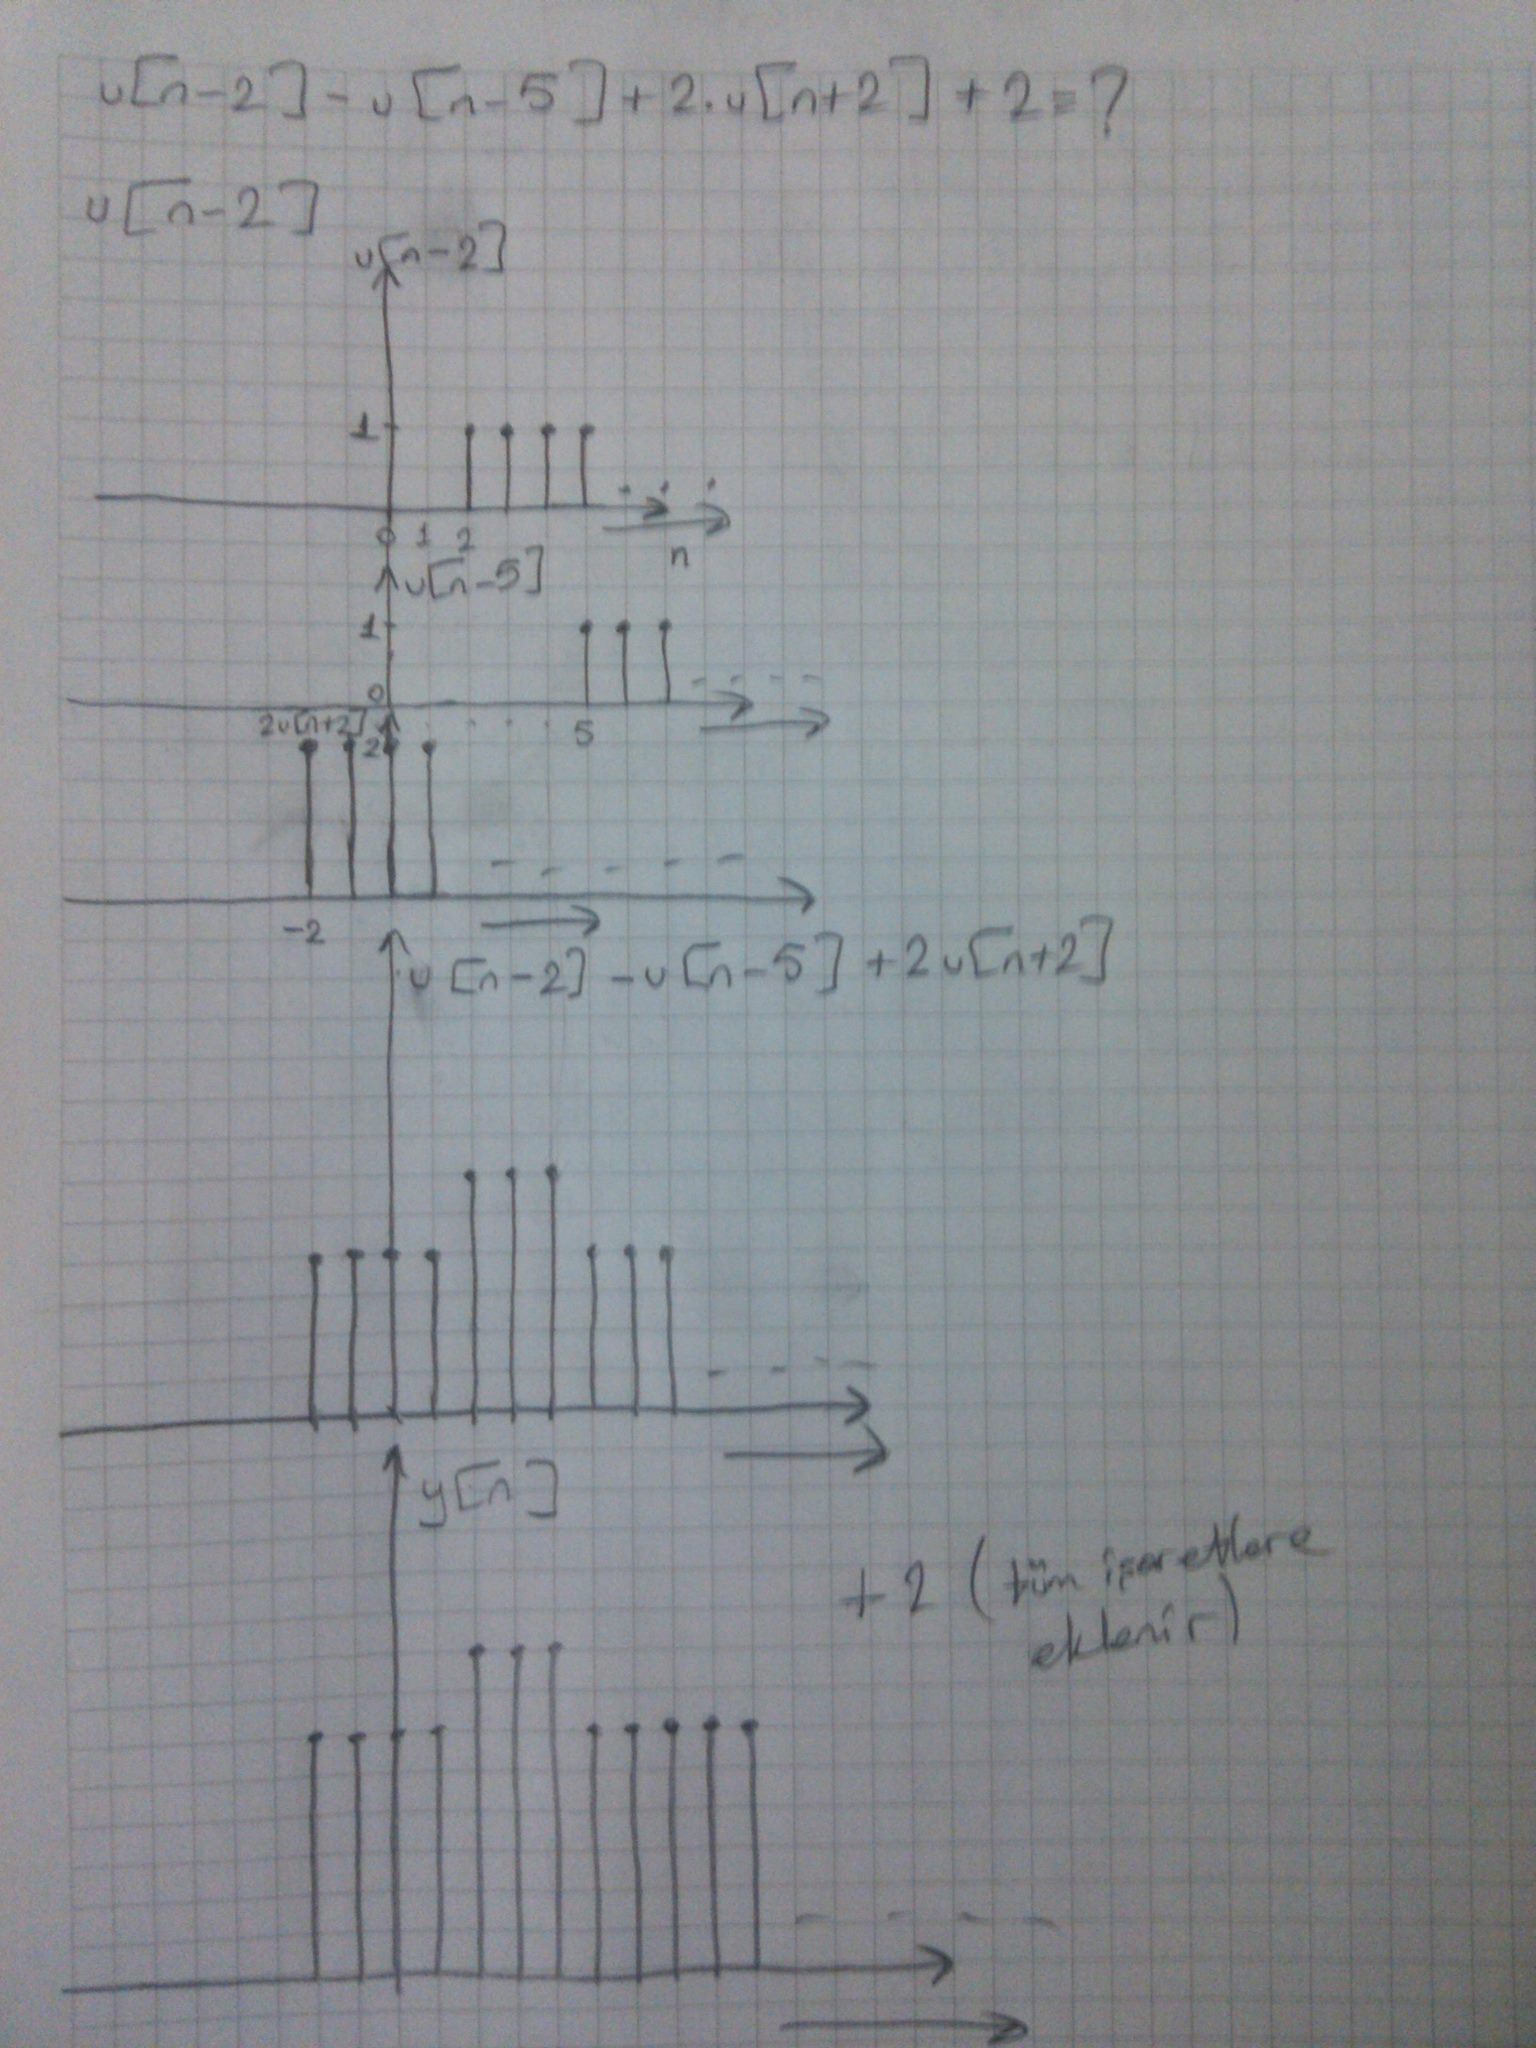 u[n-2] - u[n-5] + 2.u[n+2] + 2 = ?
u[n-2]
u[n-2]
1
0 1 2
n
u[n-5]
1
0
5
2u[n+2]
2
-2
u[n-2] - u[n-5] + 2u[n+2]
y[n]
+2 (tüm işaretlere
eklenir)